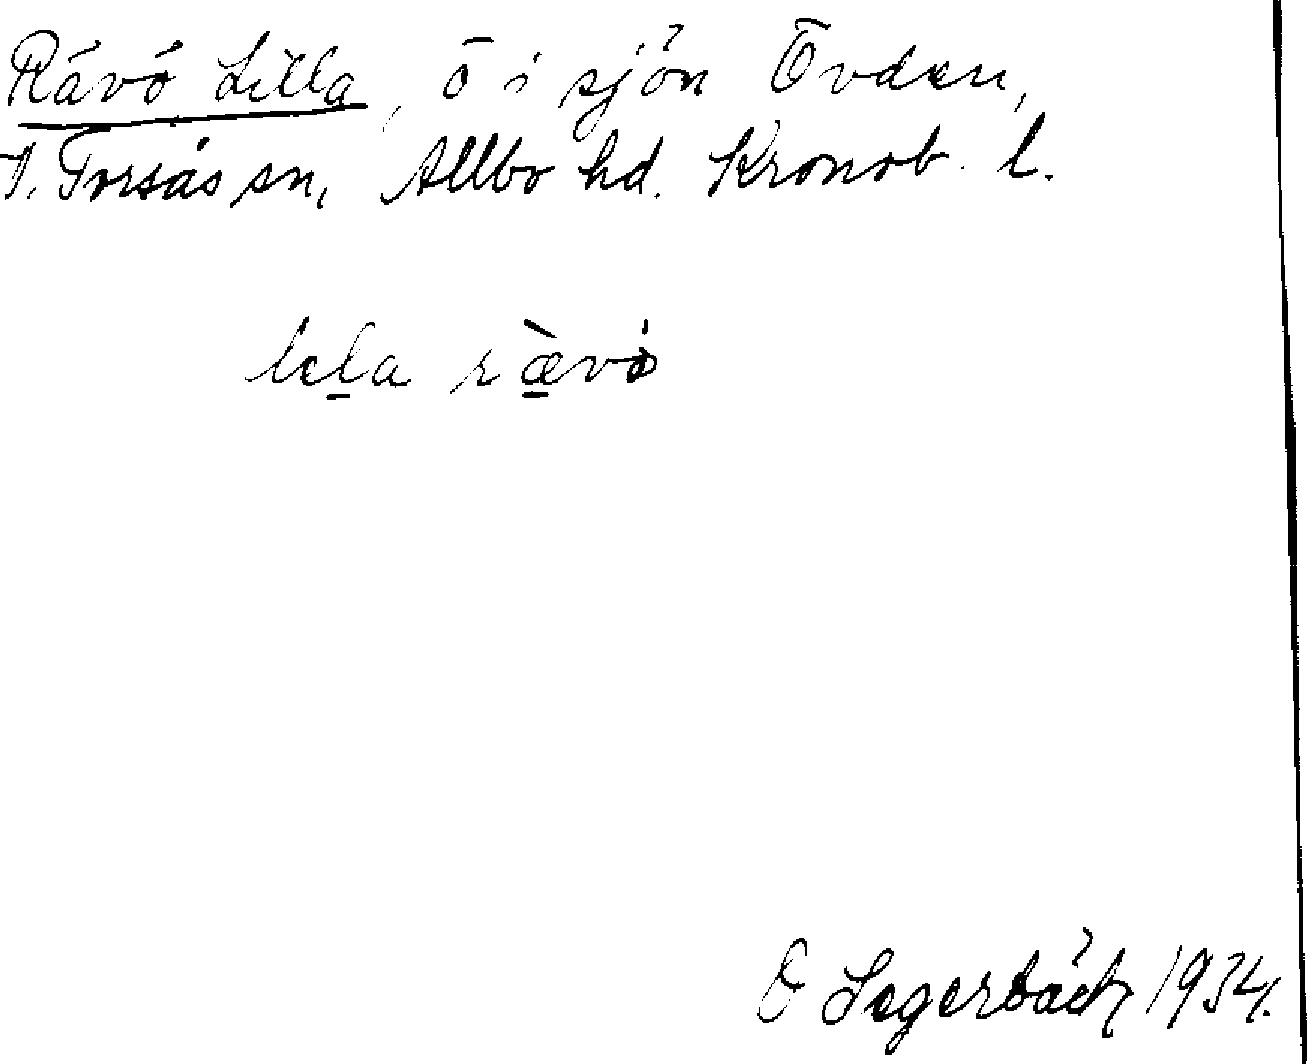 Rävö Lilla, ö i sjön Övden,
V. Torsås sn, Allbo hd. Kronob. l.
lela rævö
O Segerbäck 1934.